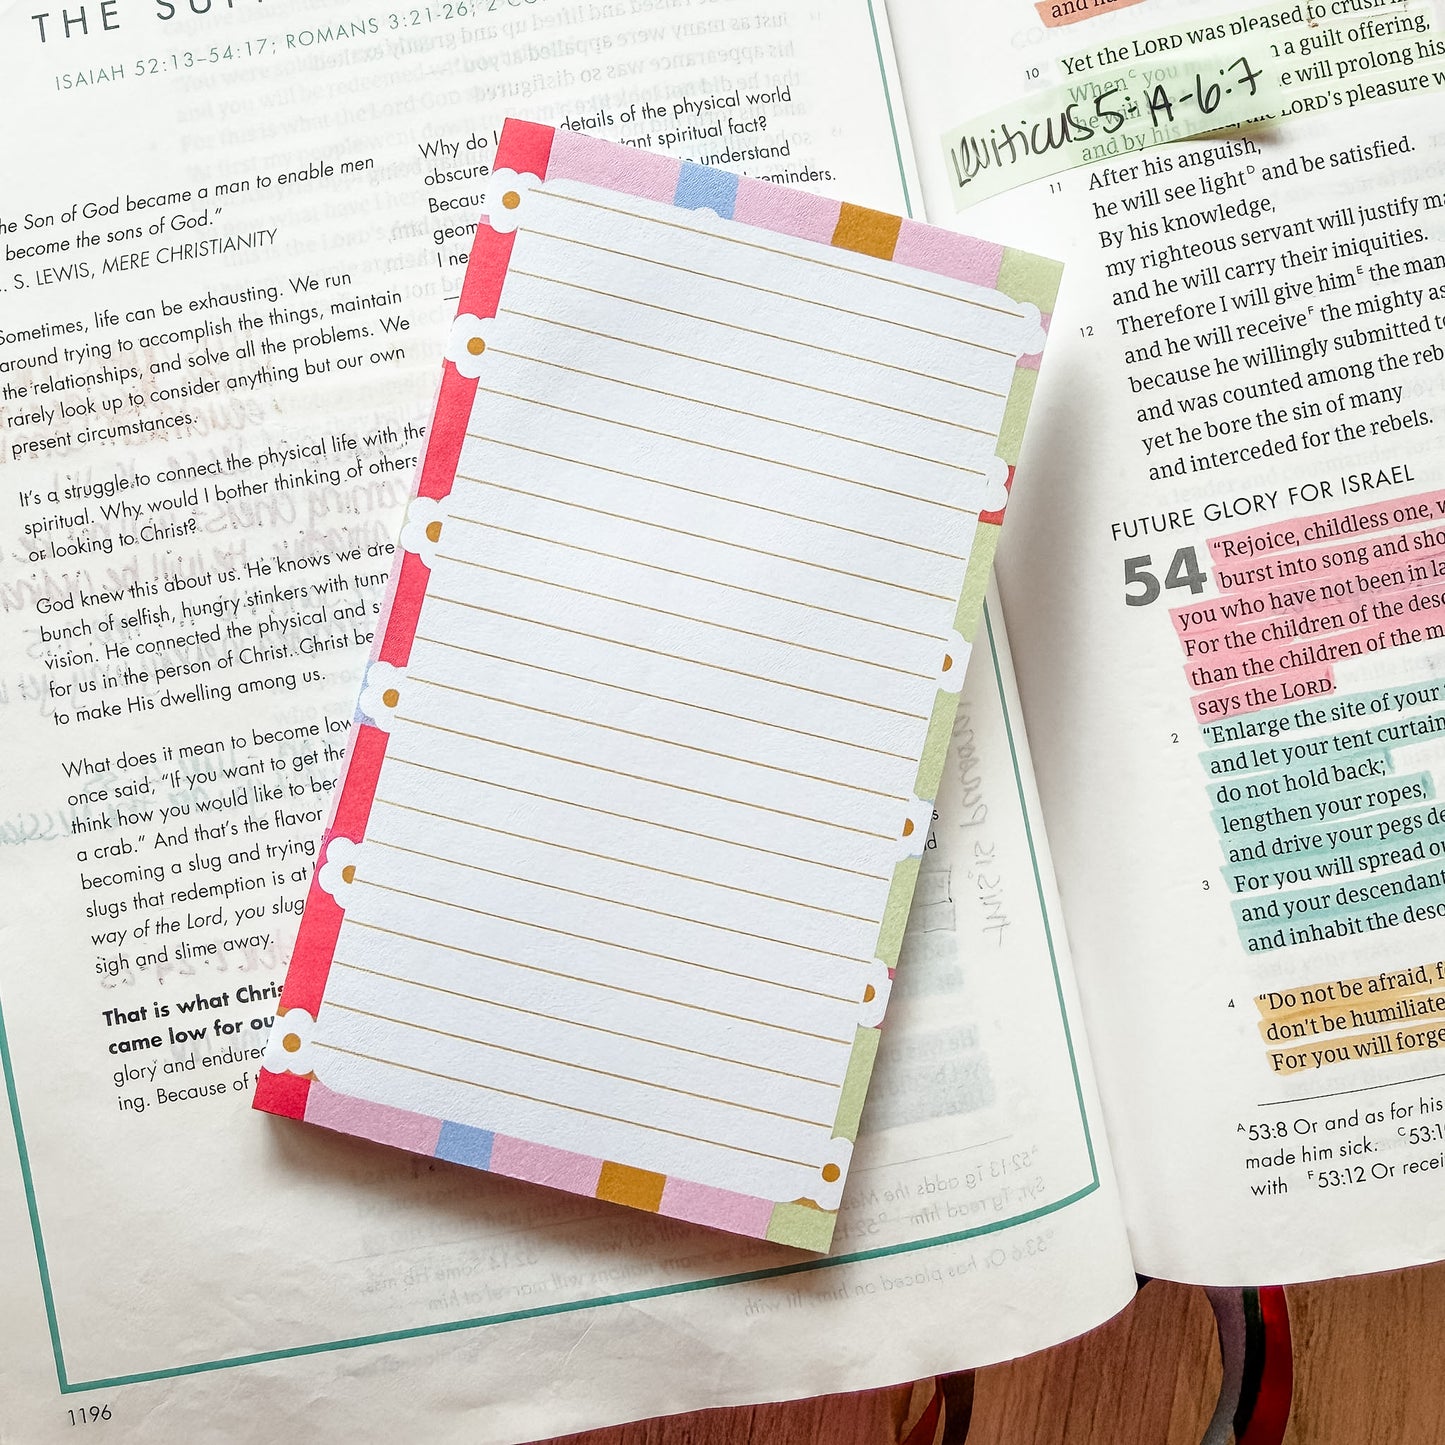 THE
ISAIAH 52:13–54:17; ROMANS 3:21-26; 2
he Son of God became a man to enable men
become the sons of God.”
. S. LEWIS, MERE CHRISTIANITY
Sometimes, life can be exhausting. We run
around trying to accomplish the things, maintain
the relationships, and solve all the problems. We
rarely look up to consider anything but our own
present circumstances.
It’s a struggle to connect the physical life with the
spiritual. Why would I bother thinking of others
or looking to Christ?
God knew this about us. He knows we are
bunch of selfish, hungry stinkers with tunn
vision. He connected the physical and s
for us in the person of Christ. Christ be
to make His dwelling among us.
What does it mean to become low
once said, “If you want to get the
think how you would like to bec
a crab.” And that’s the flavor
becoming a slug and trying
slugs that redemption is at
way of the Lord, you slug
sigh and slime away.
That is what Chris
came low for ou
glory and endured
ing. Because of
1196
Why do I details of the physical world
obscure tant spiritual fact?
Becaus understand
geom reminders.
I ne
and
10 Yet the LORD was pleased to crush
When C you a guilt offering,
he will e will prolong his
and by his LORD’s pleasure w
Leviticus 5:14-6:7
11 After his anguish,
he will see light D and be satisfied.
By his knowledge,
my righteous servant will justify ma
and he will carry their iniquities.
12 Therefore I will give him E the man
and he will receive F the mighty as
because he willingly submitted to
and was counted among the reb
yet he bore the sin of many
and interceded for the rebels.
FUTURE GLORY FOR ISRAEL
54 “Rejoice, childless one, w
burst into song and sho
you who have not been in la
For the children of the deso
than the children of the m
says the LORD.
2 “Enlarge the site of your
and let your tent curtain
do not hold back;
lengthen your ropes,
and drive your pegs de
3 For you will spread ou
and your descendant
and inhabit the deso
4 “Do not be afraid, f
don’t be humiliate
For you will forge
A 53:8 Or and as for his
made him sick. C 53:1
with F 53:12 Or recei